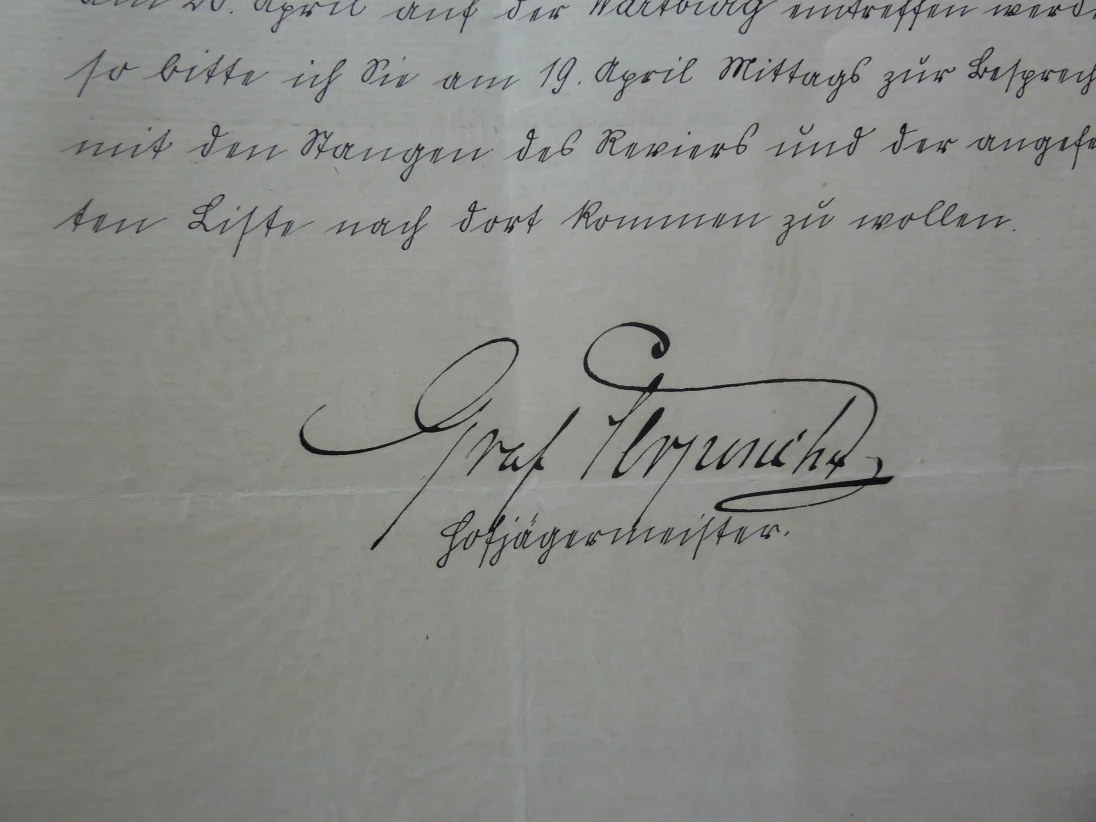 am 20. April auf der Wartburg eintreffen werde
so bitte ich Sie am 19. April Mittags zur Besprech
mit den Stangen des Reviers und der angefe
ten Liste nach dort kommen zu wollen.
Graf
Hofjägermeister.